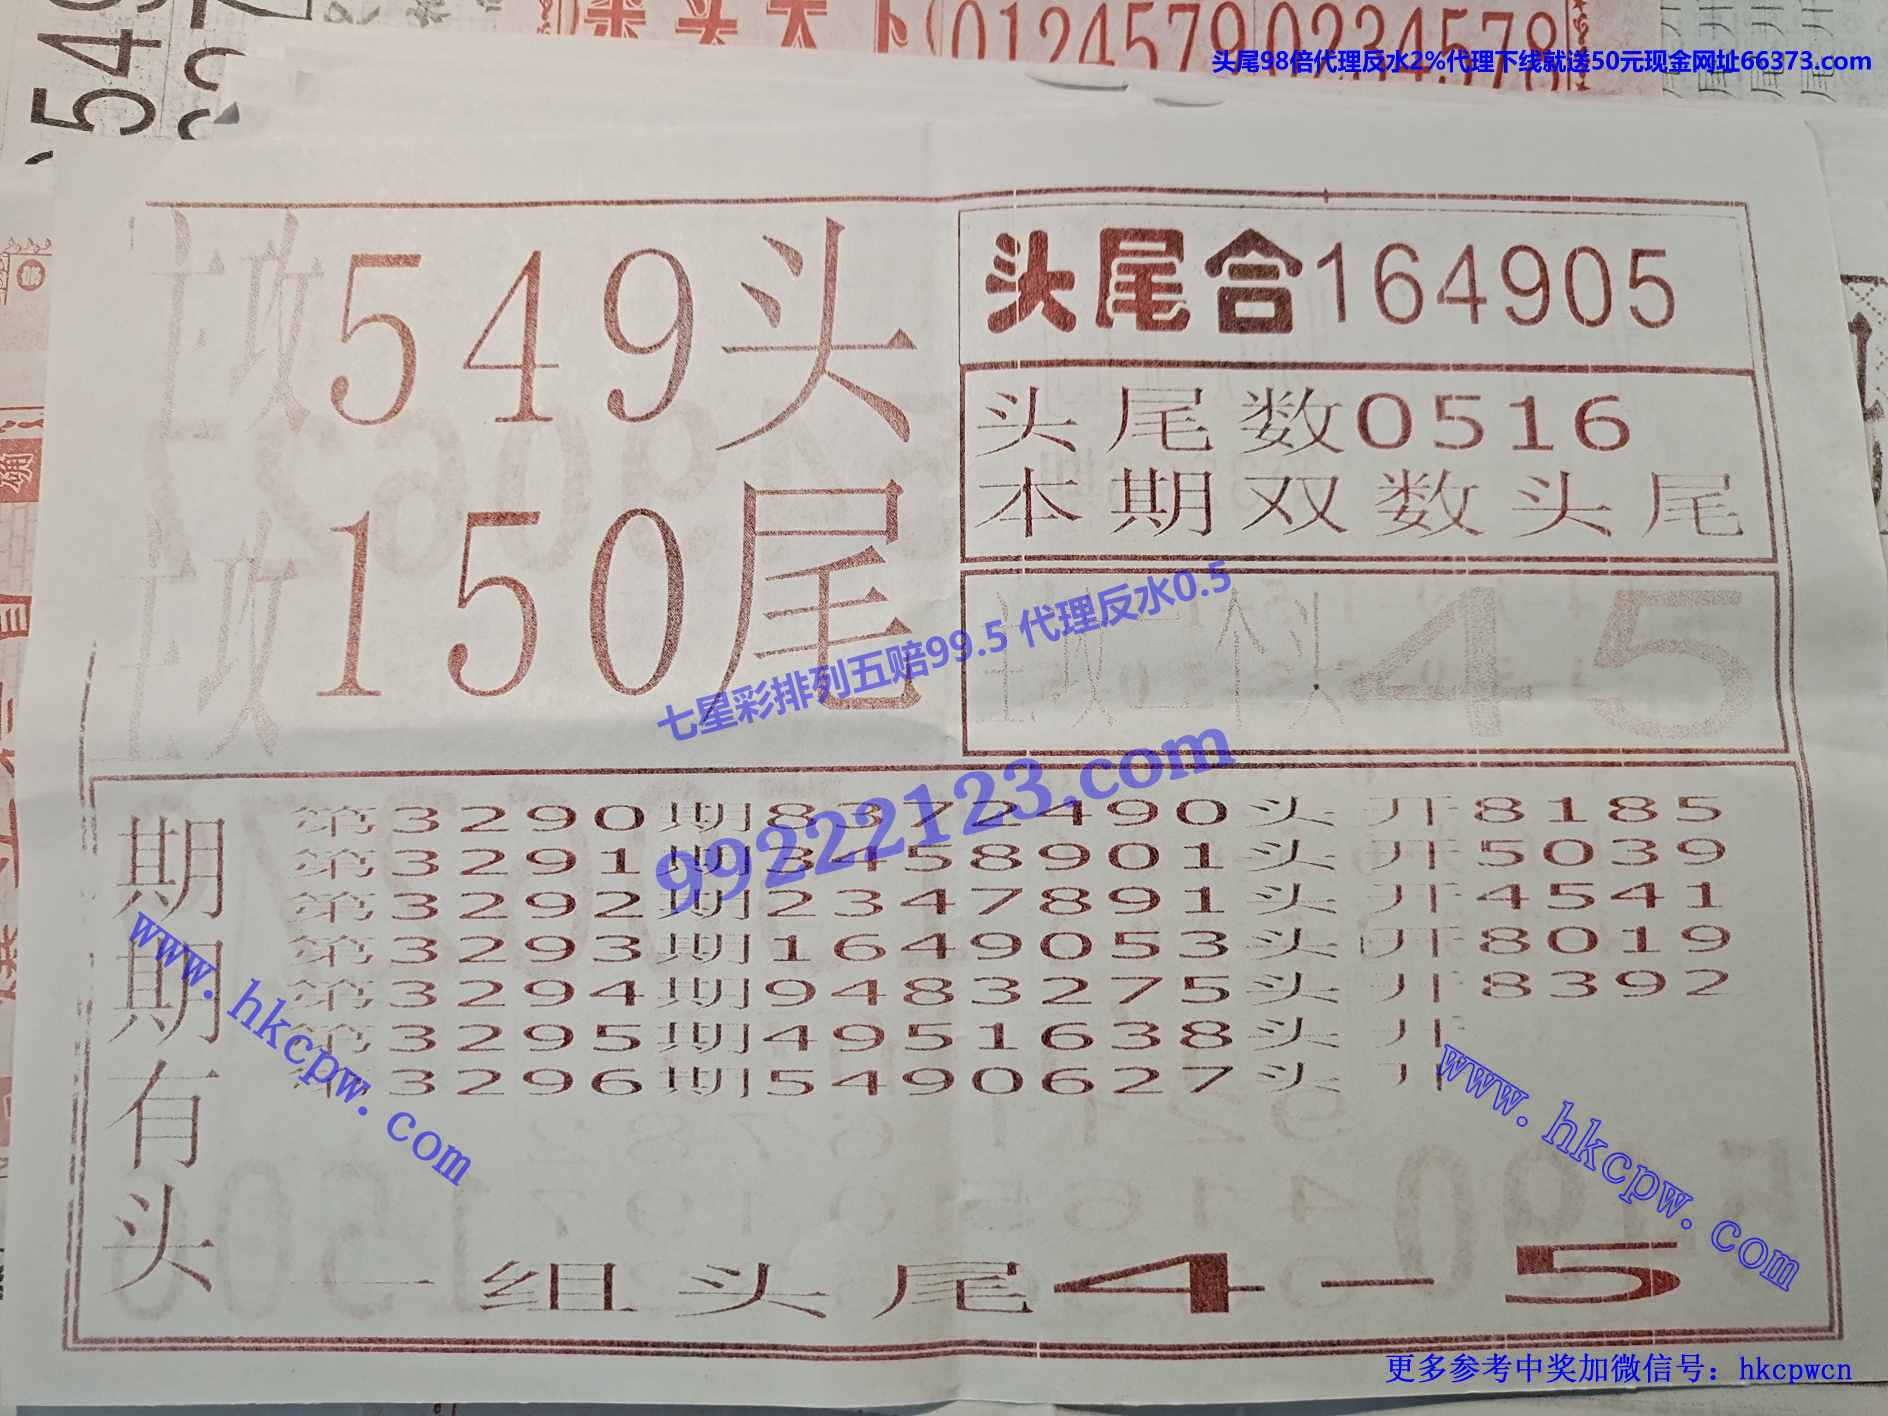 549
0124579
0234578
头尾98倍代理反水2%代理下线就送50元现金网址66373.com
主攻549头
主攻150尾
头尾合164905
头尾数0516
本期双数头尾
主攻二个头45
七星彩排列五赔99.5 代理反水0.5
99222123.com
期期有头
第3290期8372490头 开8185
第3291期3458901头 开5039
第3292期2347891头 开4541
第3293期1649053头 开8019
第3294期9483275头 开8392
第3295期4951638头 开
第3296期5490627头 开
www.hkcpw.com
www.hkcpw.com
一组头尾4－5
更多参考中奖加微信号：hkcpwcn